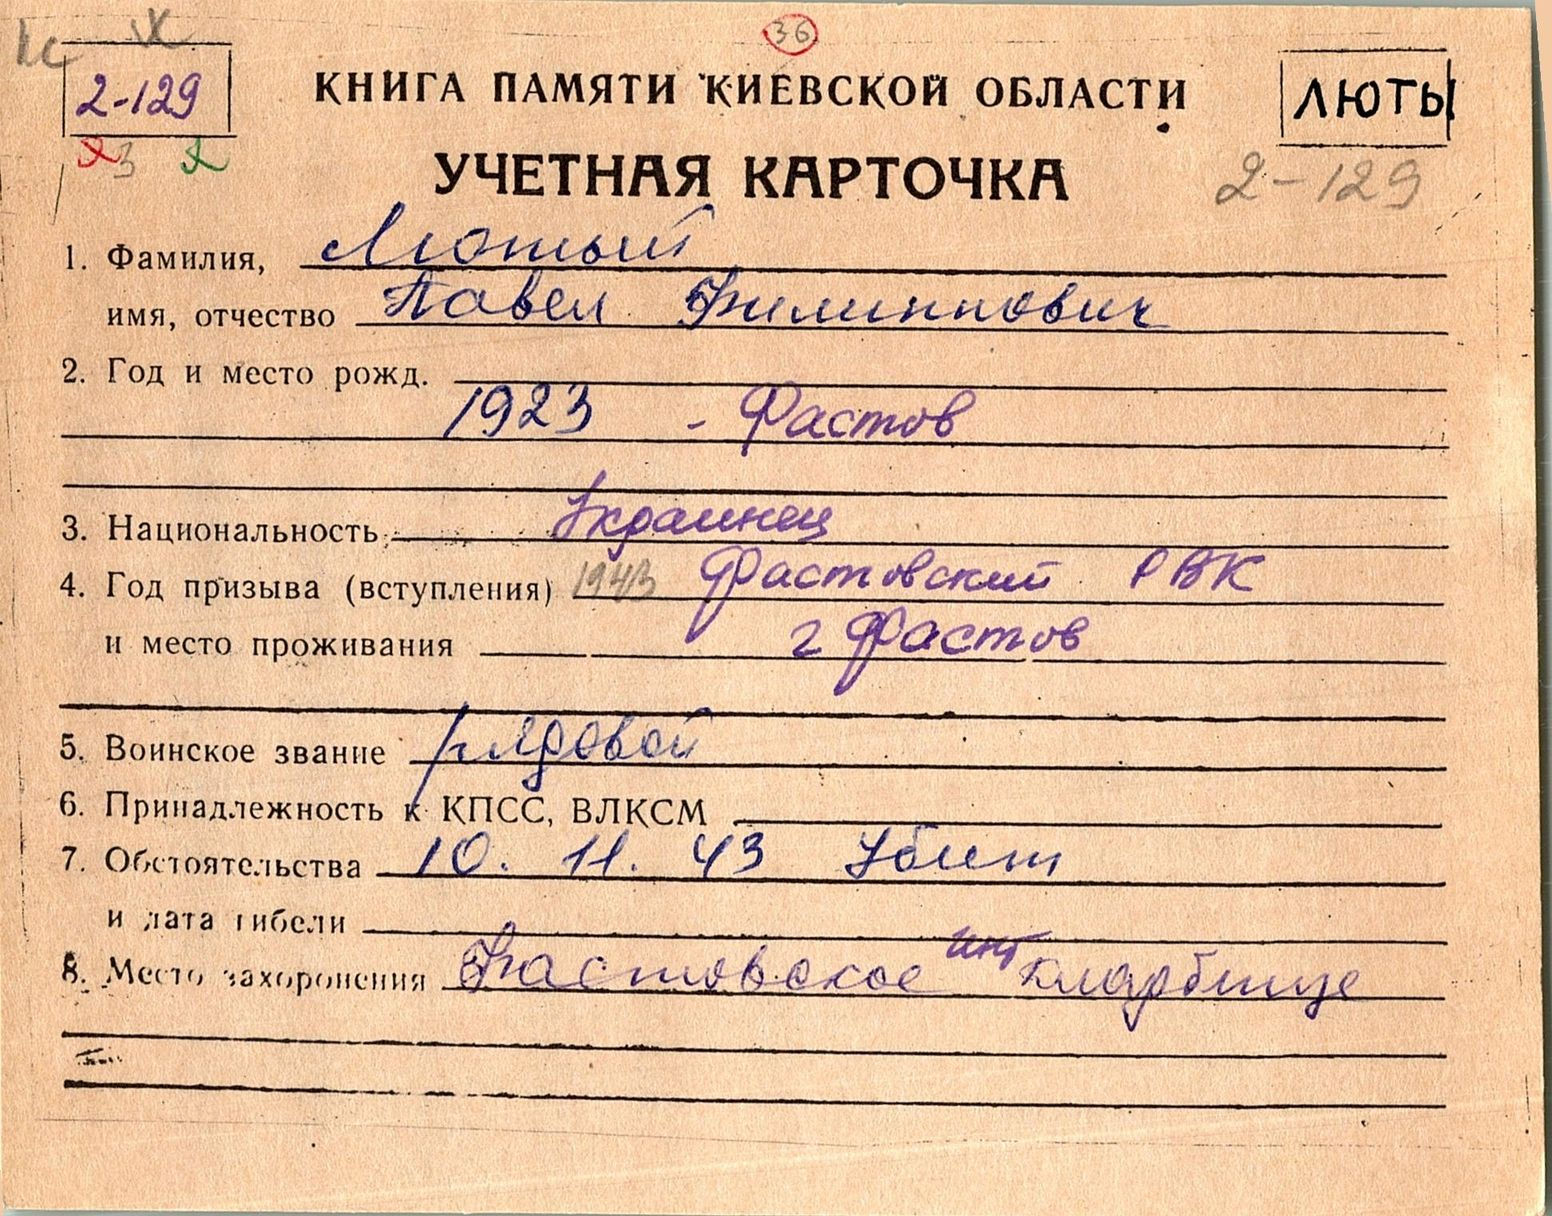 36
2-129
КНИГА ПАМЯТИ КИЕВСКОЙ ОБЛАСТИ
ЛЮТЫ
3
УЧЕТНАЯ КАРТОЧКА
2-129
1. Фамилия, Лютый
имя, отчество Павел Филиппович
2. Год и место рожд.
1923 - Фастов
3. Национальность Украинец
4. Год призыва (вступления) 1943 Фастовский РВК
и место проживания г Фастов
5. Воинское звание рядовой
6. Принадлежность к КПСС, ВЛКСМ
7. Обстоятельства 10. 11. 43 Убит
и дата гибели
8. Место захоронения Фастовское инт кладбище